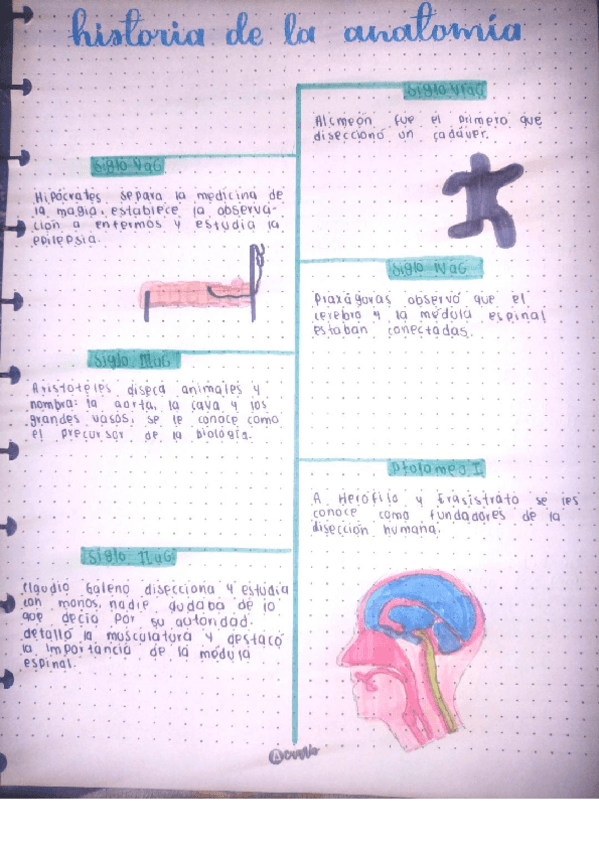 historia de la anatomía
Siglo VIaC
Alcmeón fue el primero que
diseccionó un cadáver.
Siglo VaC
Hipócrates separa la medicina de
la magia, establece la observa-
ción a enfermos y estudia la
epilepsia.
Siglo IVaC
Praxágoras observó que el
cerebro y la médula espinal
estaban conectadas.
Siglo IIIaC
Aristóteles diseca animales y
nombra: la aorta, la cava y los
grandes vasos, se le conoce como
el precursor de la biología.
Ptolomeo I
A Herófilo y Erasístrato se les
conoce como fundadores de la
disección humana.
Siglo IIaC
Claudio Galeno disecciona y estudia
con monos, nadie dudaba de lo
que decía por su autoridad.
detalló la musculatura y destacó
la importancia de la médula
espinal.